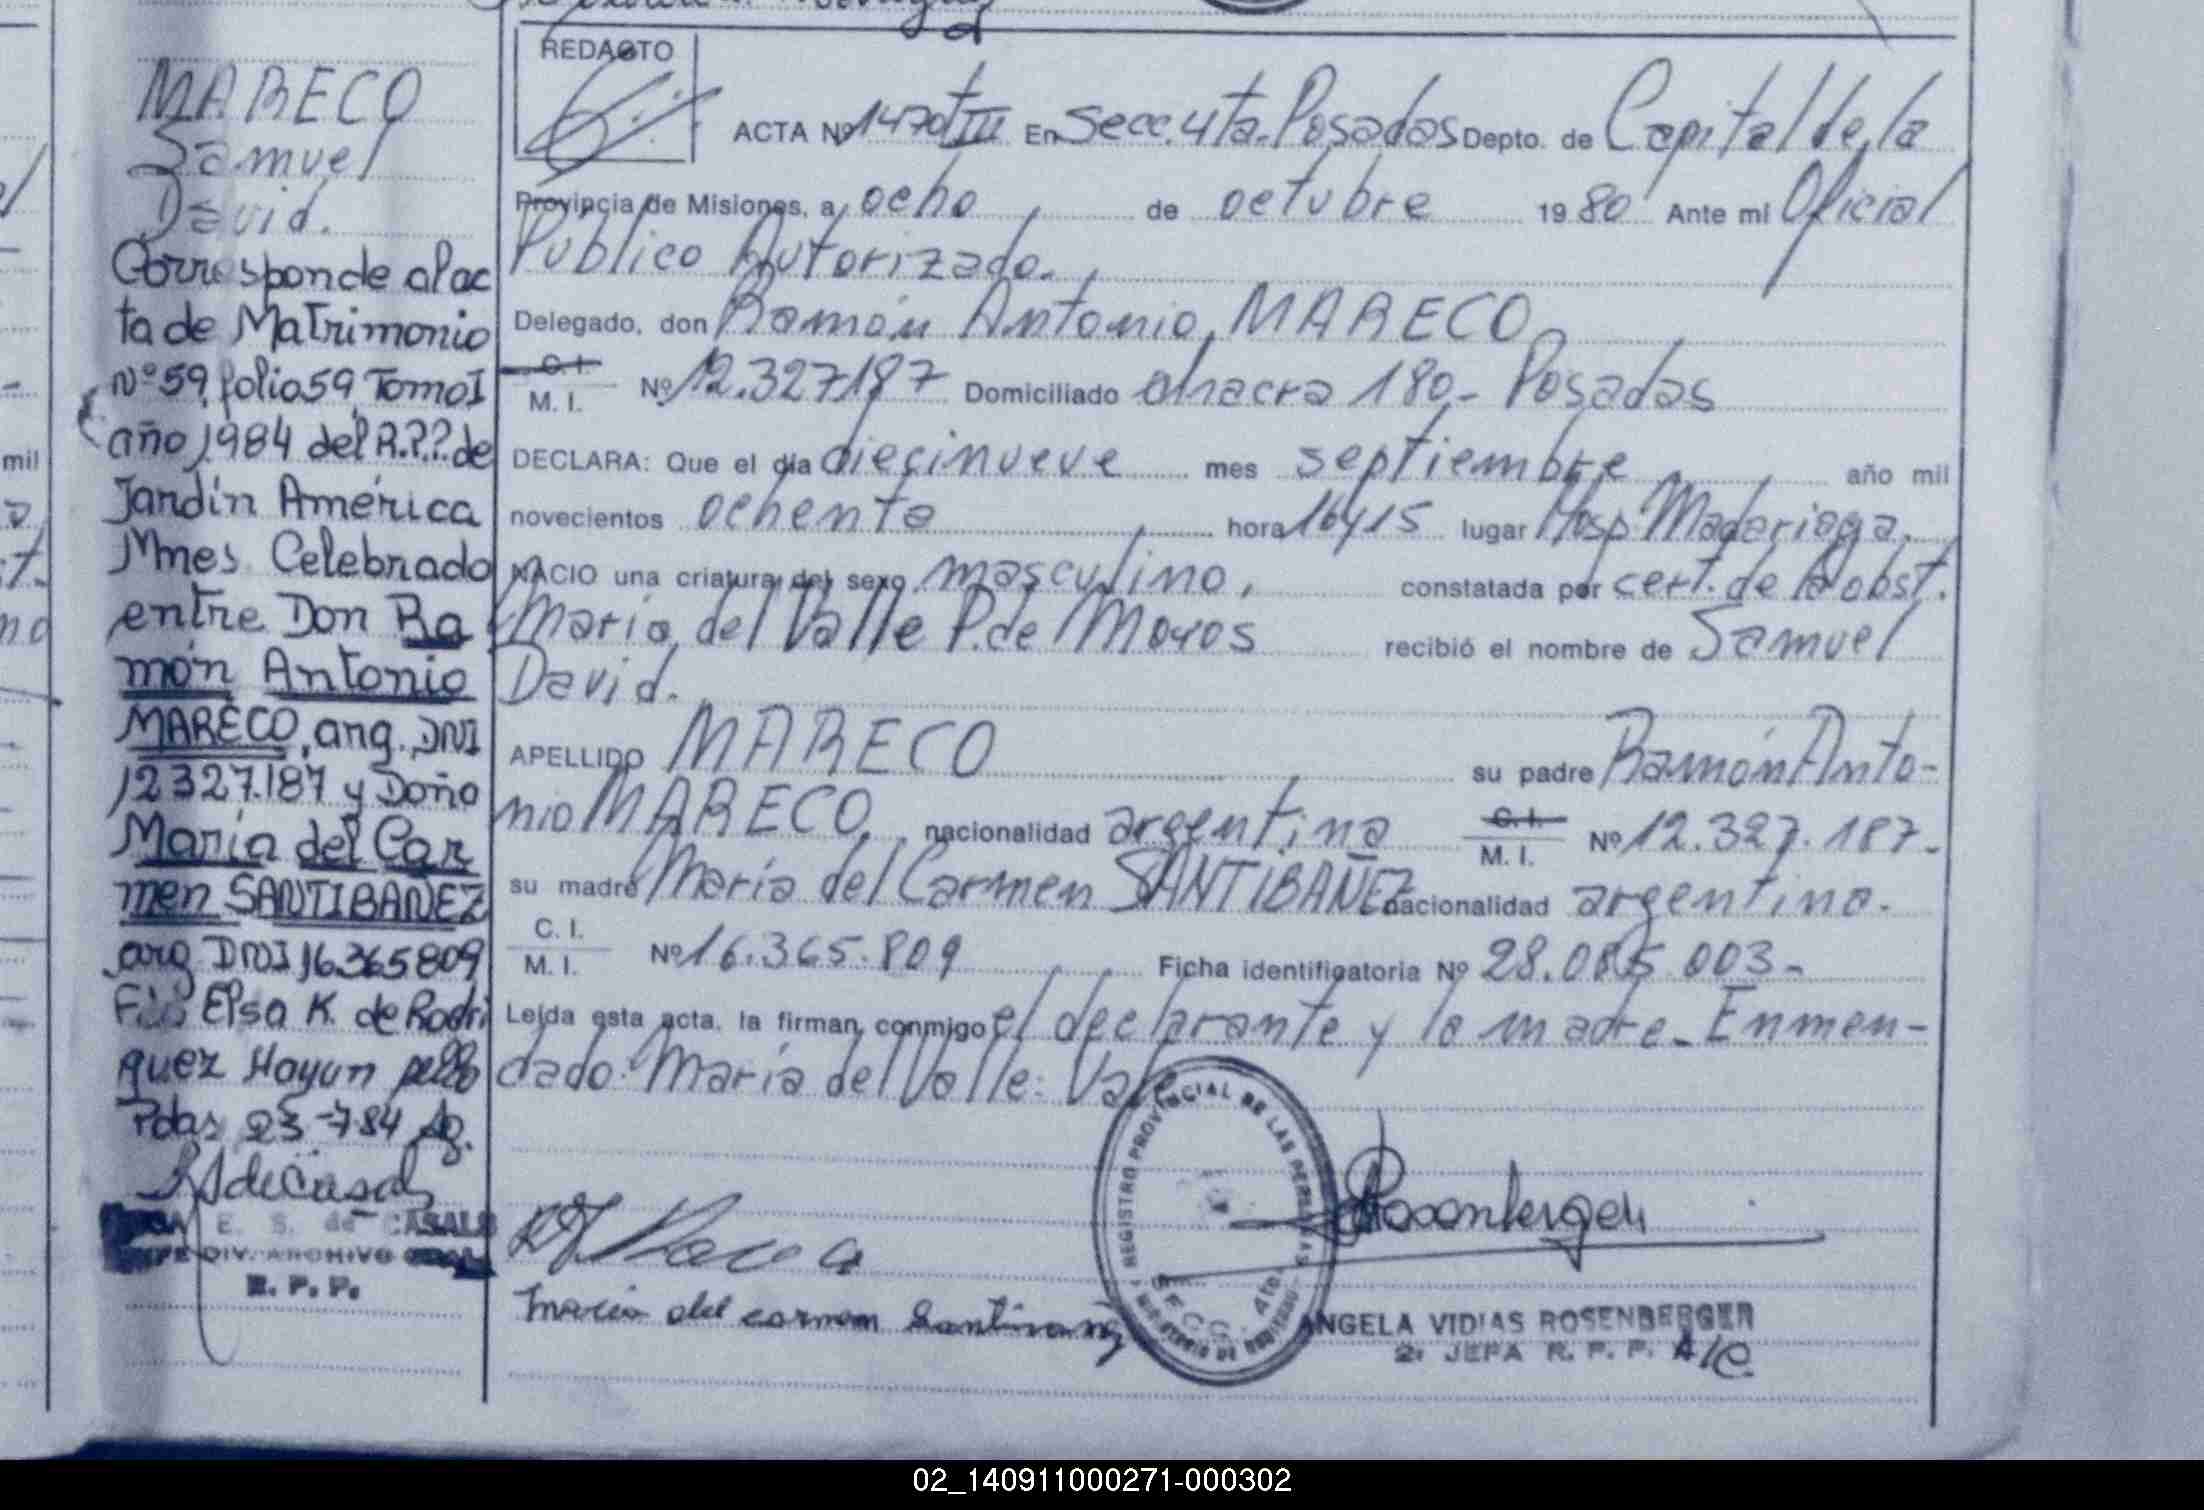 MARECO
Samuel
David.
Corresponde al ac
ta de Matrimonio
Nº 59, folio 59, Tomo I
año 1984 del R.P.P. de
Jardín América
Mnes. Celebrado
entre Don Ra
món Antonio
MARECO, arg. DNI
12327.187 y Doña
María del Car
men SANTIBAÑEZ
arg DNI 16365809
Elsa K. de Rodri
guez
Pdas 23-7-84
E. S. de CASALS
DIV. ARCHIVO
R. P. P.
REDACTO
ACTA Nº 1470 T III En Secc. 4ta. Posadas Depto. de Capital de la
Provincia de Misiones, a ocho, de octubre 1980 Ante mi Oficial
Público Autorizado.
Delegado, don Ramón Antonio, MARECO,
C. I.
M. I. Nº 12.327187 Domiciliado chacra 180- Posadas
DECLARA: Que el día diecinueve mes septiembre año mil
novecientos ochenta hora 16y15 lugar Hosp. Madariaga,
NACIO una criatura del sexo masculino, constatada por cert. de la obst.
María del Valle P. de Moyos recibió el nombre de Samuel
David.
APELLIDO MARECO su padre Ramón Anto-
nio MARECO, nacionalidad argentina C. I.
M. I. Nº 12.327.187-
su madre María del Carmen SANTIBAÑEZ nacionalidad argentina.
C. I.
M. I. Nº 16.365.809 Ficha identificatoria Nº 28.085.003-
Leída esta acta, la firman conmigo el declarante y la madre. Enmen-
dado: María del Valle: Vale
REGISTRO PROVINCIAL DE LAS PERSONAS
SECC. 4ta.
Rosenberger
María del carmen
ANGELA VIDIAS ROSENBERGER
2º JEFA R. P. P. A/C.
mil
02_140911000271-000302